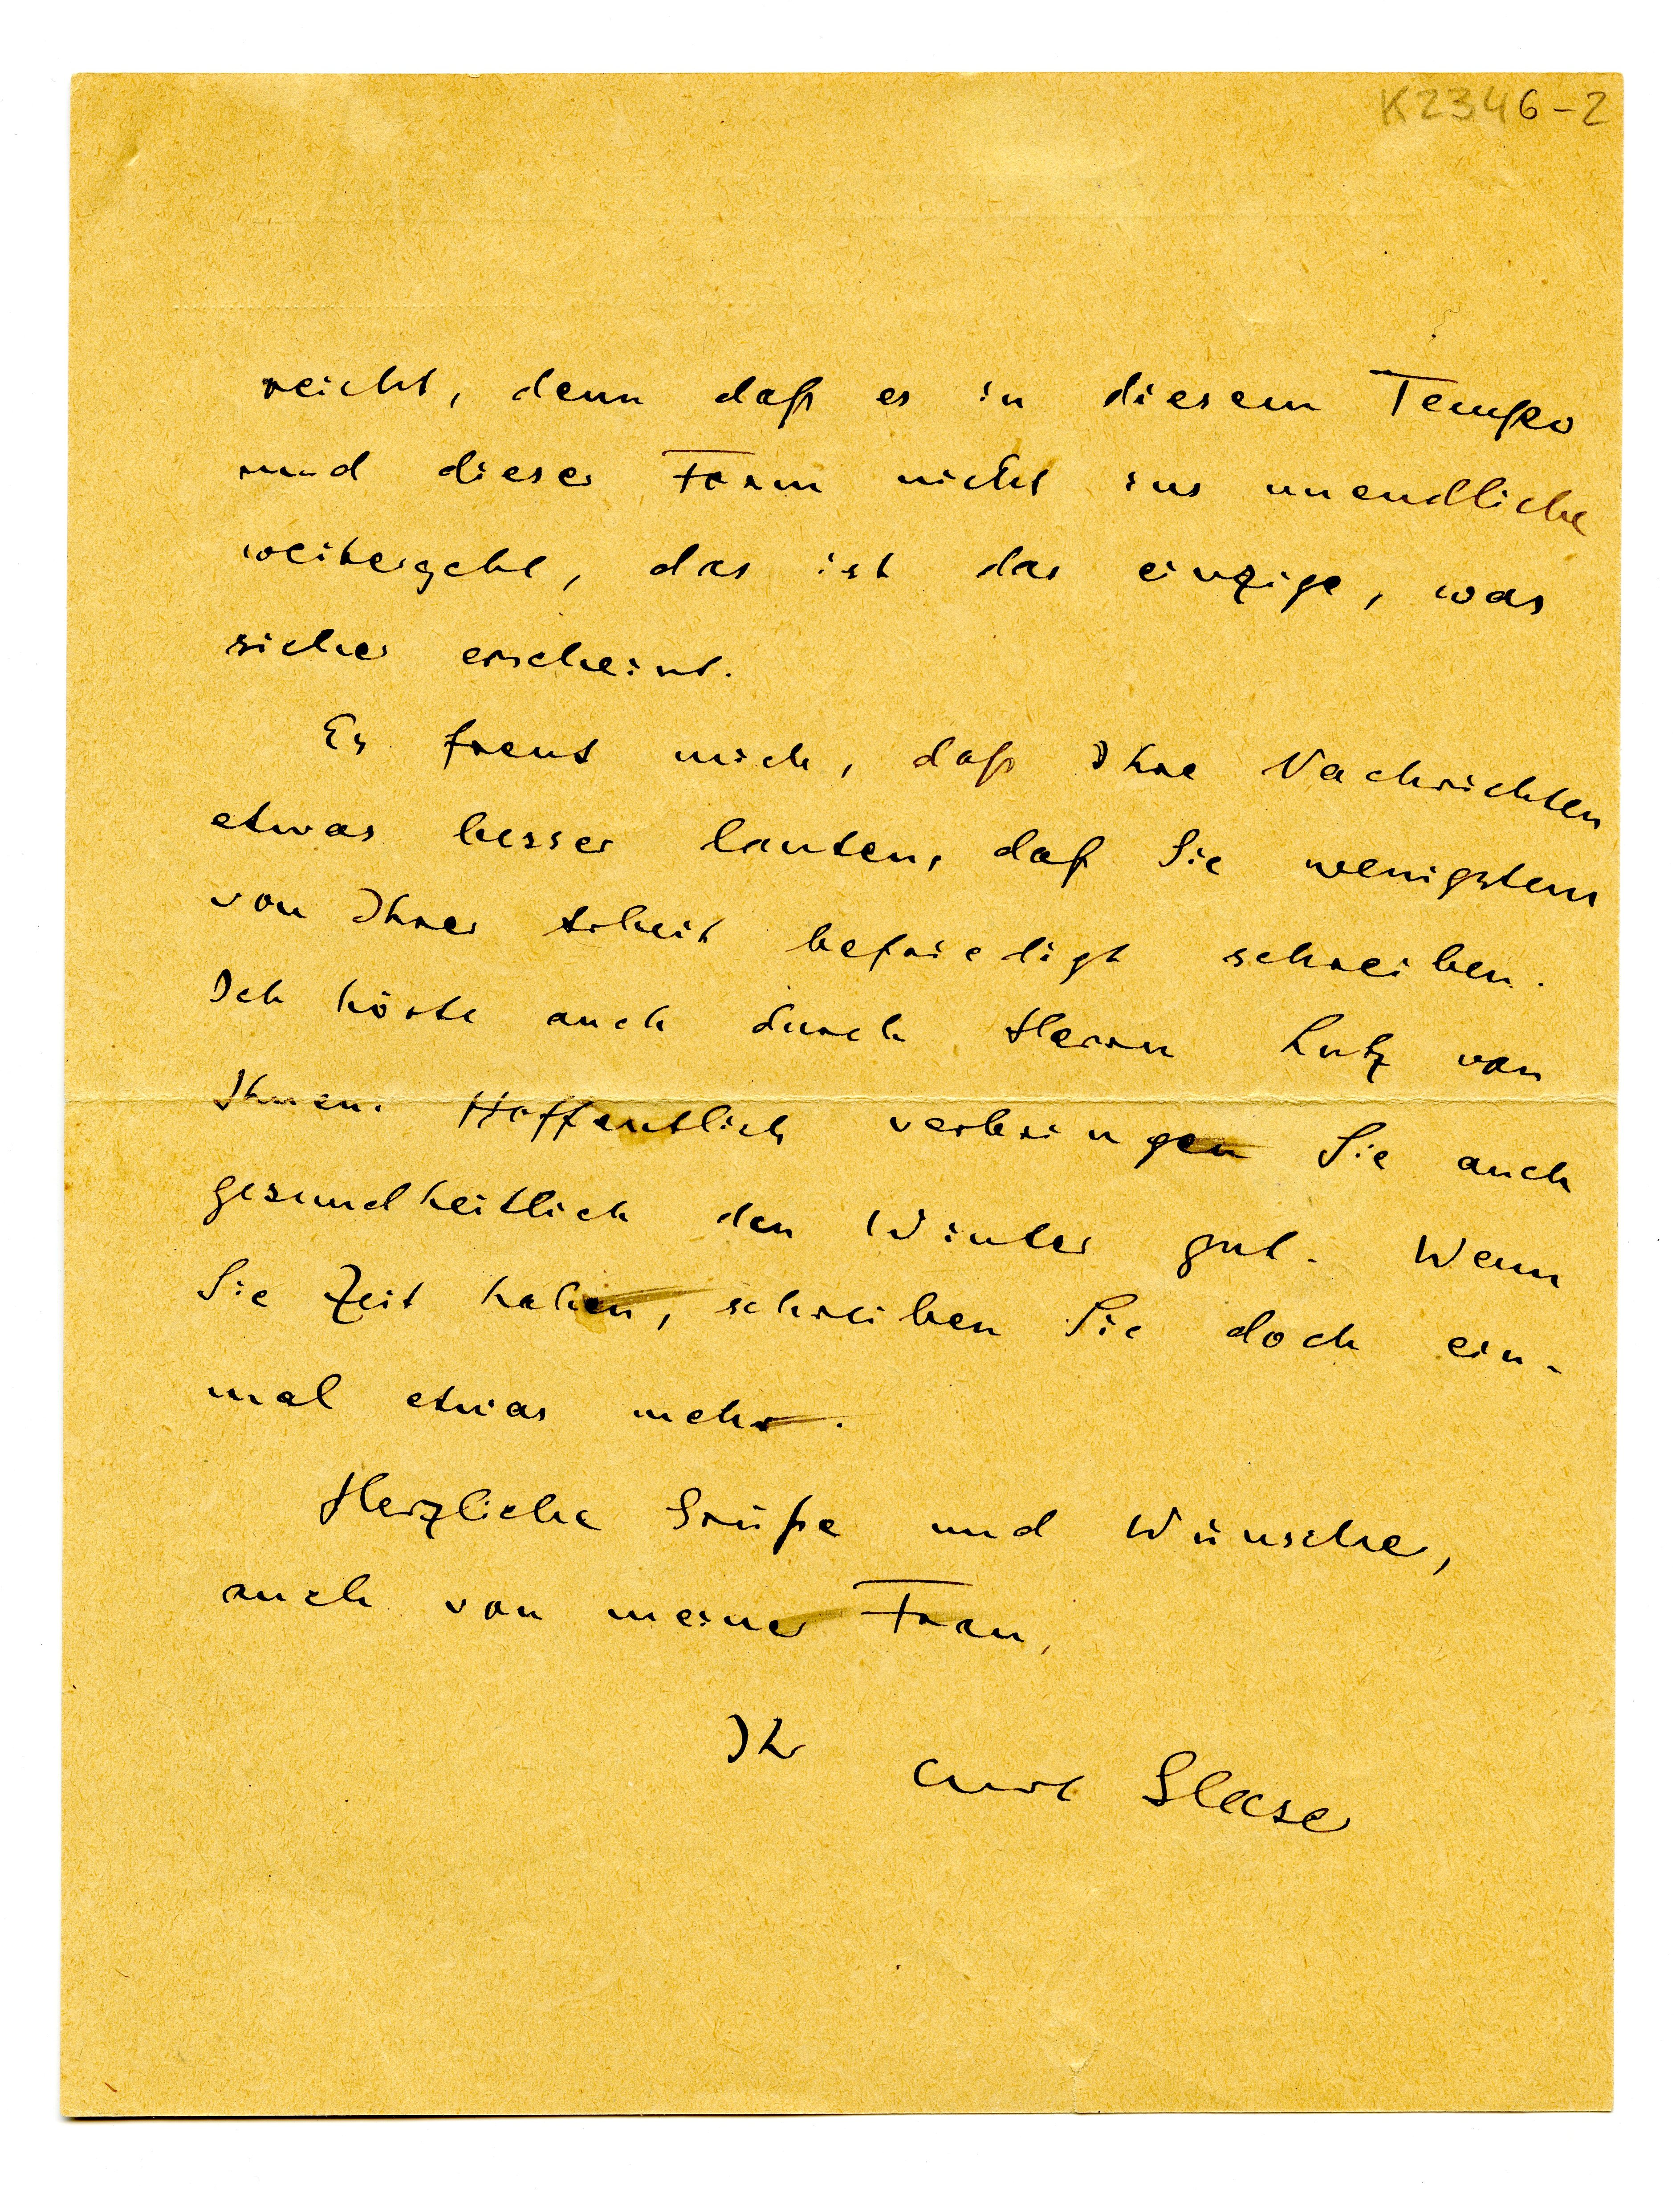 K2346-2
reicht, denn daß es in diesem Tempo
und dieser Form nicht ins unendliche
weitergeht, das ist das einzige, was
sicher erscheint.
Es freut mich, daß Ihre Nachrichten
etwas besser lauten, daß Sie wenigstens
von Ihrer Arbeit befriedigt schreiben.
Ich hörte auch durch Herrn Lutz von
Ihnen. Hoffentlich verbringen Sie auch
gesundheitlich den Winter gut. Wenn
Sie Zeit haben, schreiben Sie doch ein-
mal etwas mehr.
Herzliche Grüße und Wünsche,
auch von meiner Frau,
Ihr Curt Glaser